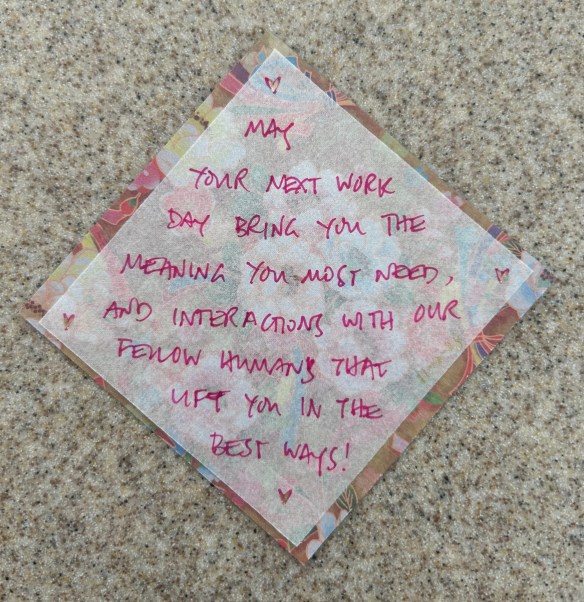 MAY
YOUR NEXT WORK
DAY BRING YOU THE
MEANING YOU MOST NEED,
AND INTERACTIONS WITH OUR
FELLOW HUMANS THAT
LIFT YOU IN THE
BEST WAYS!